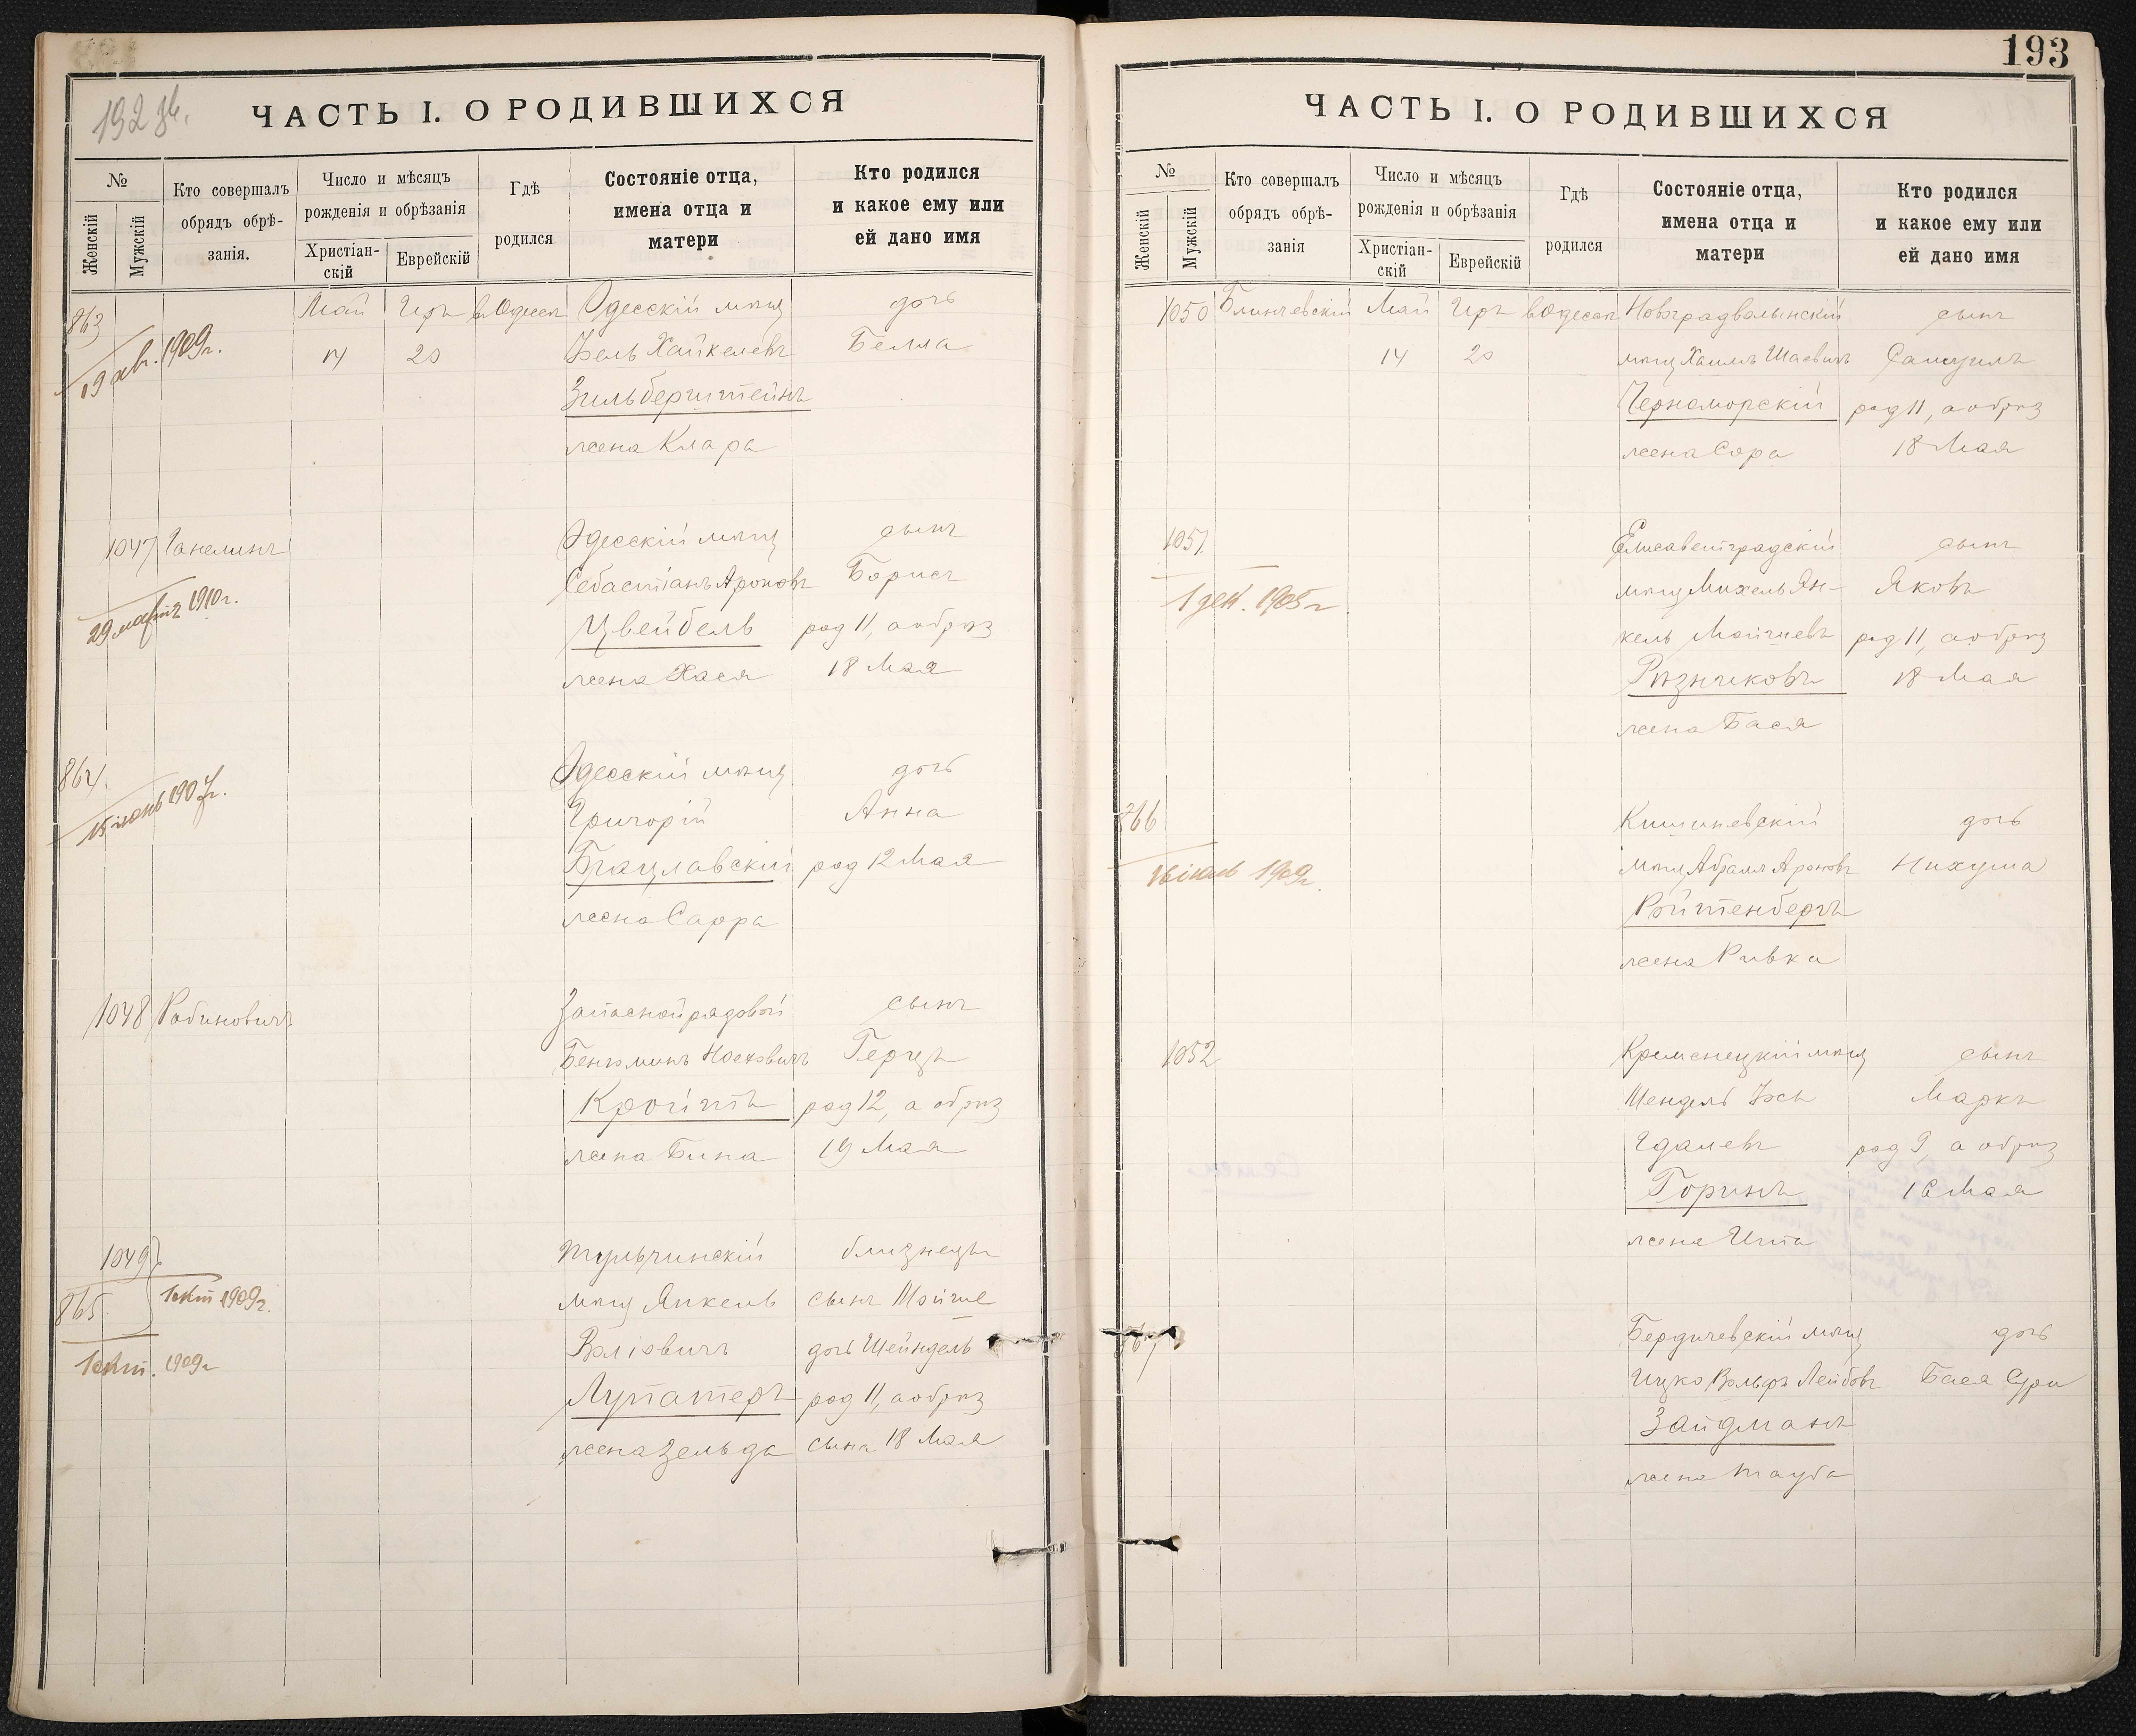 192 об.
ЧАСТЬ I. О РОДИВШИХСЯ
№
Женскій
Мужскій
Кто совершалъ
обрядъ обрѣ-
занія.
Число и мѣсяцъ
рожденія и обрѣзанія
Христіан-
скій
Еврейскій
Гдѣ
родился
Состояніе отца,
имена отца и
матери
Кто родился
и какое ему или
ей дано имя
863
1909г.
Май
14
Иръ
20
в Одессѣ
Одесскій мѣщ
Хайкелевъ
Зильберштейнъ
жена Клара
дочь
Белла
1047
Ганелинъ
29 мартъ 1910г.
Одесскій мѣщ
Себастіанъ Ароновъ
Цвейбель
жена Хася
сынъ
Борисъ
род 11, а обрѣз
18 Мая
864
15 іюнь 1907г.
Одесскій мѣщ
Григорій
Брацлавскій
жена Сарра
дочь
Анна
род 12 Мая
1048
Рабиновичъ
Запасной рядовой
Беньминъ Носковичъ
Кройтъ
жена Бина
сынъ
Герцъ
род 12, а обрѣз
19 Мая
1049
865
1 окт 1909г.
1 окт. 1909г
Тульчинскій
мѣщ Янкель
Воліовичъ
Лупатеръ
жена Зельда
близнецы
сынъ Мойше
дочь Шейндель
род 11, а обрѣз
сына 18 Мая
193
ЧАСТЬ I. О РОДИВШИХСЯ
№
Женскій
Мужскій
Кто совершалъ
обрядъ обрѣ-
занія
Число и мѣсяцъ
рожденія и обрѣзанія
Христіан-
скій
Еврейскій
Гдѣ
родился
Состояніе отца,
имена отца и
матери
Кто родился
и какое ему или
ей дано имя
1050
Блинчевскій
Май
14
Иръ
20
в Одессѣ
Новоградволынскій
мѣщ Хаимъ Шаевичъ
Черноморскій
жена Сора
сынъ
Самуилъ
род 11, а обрѣз
18 Мая
1051
1 дек. 1905г
Елисаветградскій
мѣщ Михель Ян-
кель Мойшевъ
Рѣзниковъ
жена Бася
сынъ
Яковъ
род 11, а обрѣз
18 Мая
866
16 іюль 1909г.
Кишиневскій
мѣщ Абрамъ Ароновъ
Ройтенбергъ
жена Ривка
дочь
Нихума
1052
Кременецкій мѣщ
Мендель
Гдалевъ
Горинъ
жена Ита
сынъ
Маркъ
род 9, а обрѣз
16 Мая
867
Бердичевскій мѣщ
Ицко Вольфъ Лейбовъ
Зайдманъ
жена Тауба
дочь
Бася Сура